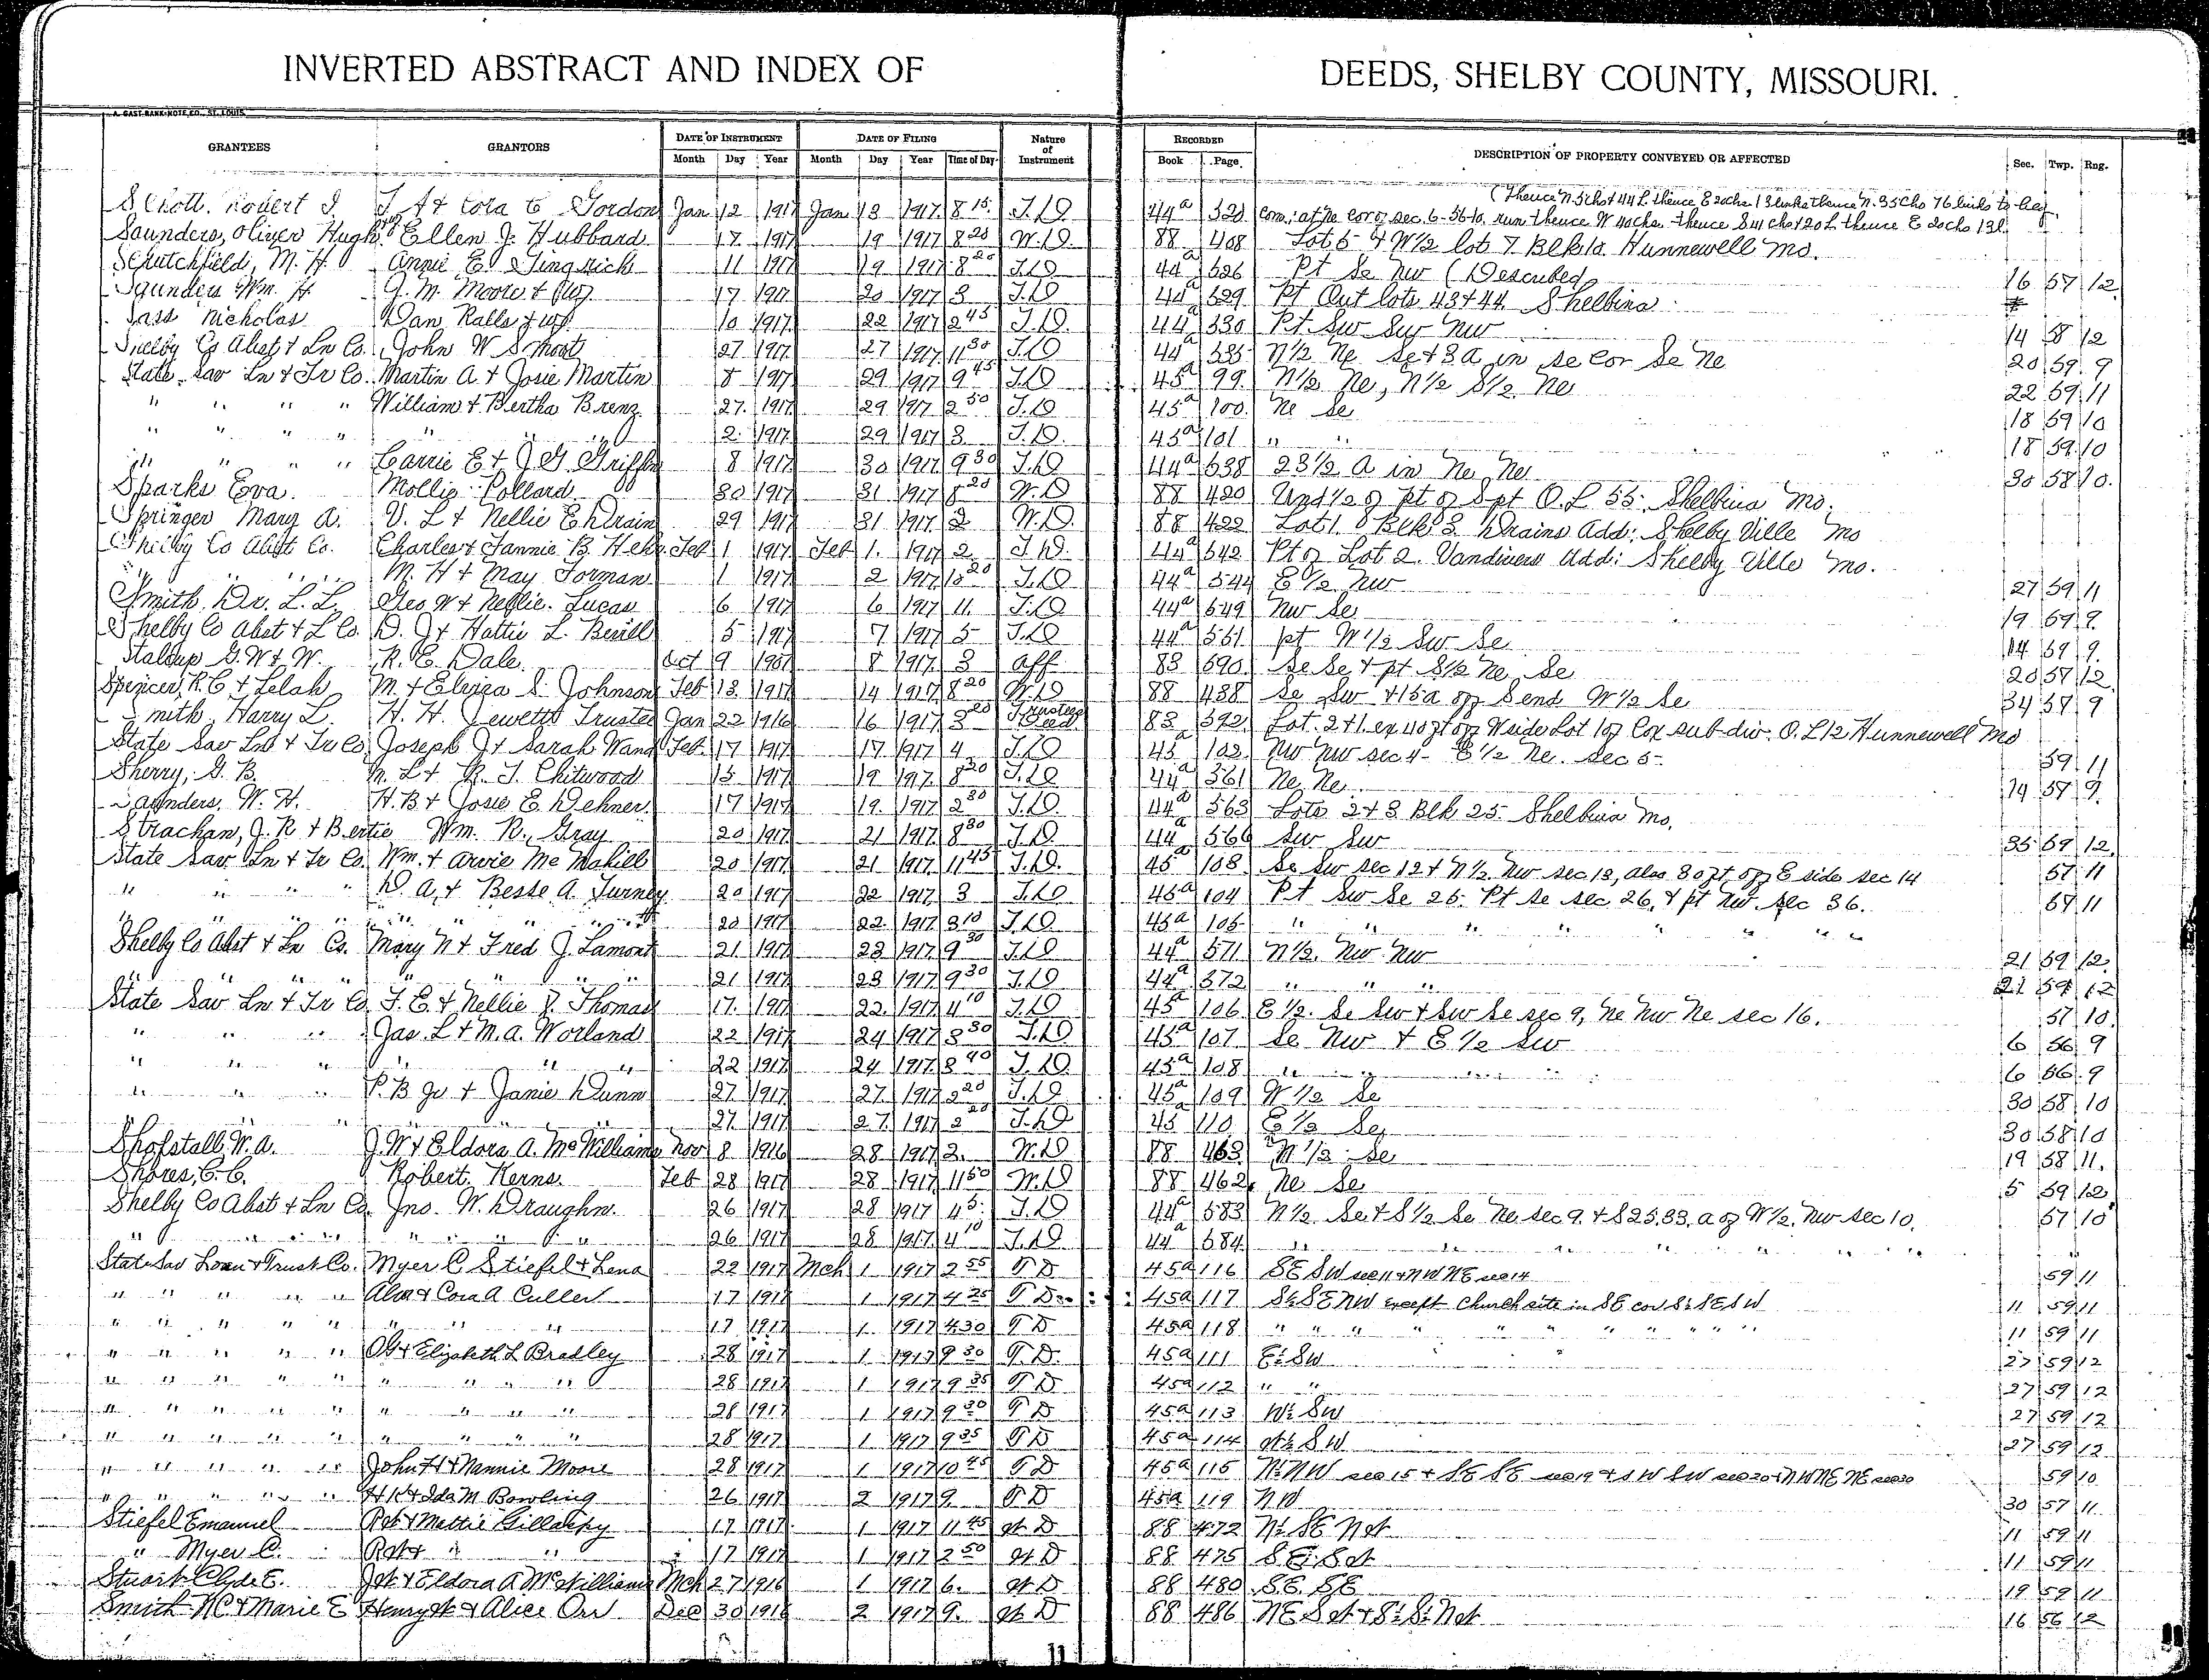 INVERTED ABSTRACT AND INDEX OF DEEDS, SHELBY COUNTY, MISSOURI.
A. GAST BANK NOTE CO., ST. LOUIS
GRANTEES GRANTORS DATE OF INSTRUMENT DATE OF FILING Nature of Instrument RECORDED DESCRIPTION OF PROPERTY CONVEYED OR AFFECTED Sec. Twp. Rng.
Month Day Year Month Day Year Time of Day Book Page
(Thence N. 5 chs & 44 L. thence E 20 chs 13 links thence N. 35 Chs 76 links to beg.
Robert & Cora E Gordon Jan 12 1917 Jan 13 1917 8 15 T.D. 44a Com. at Ne cor of sec. 6-56-10, run thence W 40 chs thence S 41 chs & 20 L thence E 20 chs 13 l.
Saunders, Oliver Hugh Ellen J. Hubbard 17 1917 19 1917 8 20 W.D. 88 408 Lot 5 & W 1/2 lot 7 Blk 10 Hunnewell Mo.
Scrutchfield, M. H. Annie E. 11 1917 19 1917 8 20 T.D. 44a 526 Pt Se Nw (Described 16 57 12
Saunders Wm. H. J. M. Moore & wf 17 1917 20 1917 3 T.D. 44a 529 Pt Out lots 43 & 44 Shelbina
Sass Nicholas Dan Ralls & wf 10 1917 22 1917 2 45 T.D. 44a 530 Pt. Sw Sw Nw 14 58 12
Shelby Co Abst & Ln Co. John W 27 1917 27 1917 11 30 T.D. 44a 535 N 1/2 Ne Se & 3 A in Se Cor Se Ne 20 59 9
State Sav Ln & Tr Co. Martin A & Josie Martin 8 1917 29 1917 9 45 T.D. 45a 99 N 1/2 Ne, N 1/2 S 1/2 Ne 22 59 11
" " " " William & Bertha Brenz 27 1917 29 1917 2 50 T.D. 45a 100 Ne Se 18 59 10
" " " " " " 2 1917 29 1917 3 T.D. 45a 101 " " 18 59 10
" " " " Carrie E & J. G. Griffin 8 1917 30 1917 9 30 T.D. 44a 538 23 1/2 A in Ne Ne 30 58 10
Sparks Eva Mollie Pollard 30 1917 31 1917 8 20 W.D. 88 420 Und 1/2 of pt of S pt O.L 55 Shelbina Mo.
Springer Mary A. V. L & Nellie E Drain 29 1917 31 1917 2 W.D. 88 422 Lot 1 Blk 3 Drains Add: Shelby Ville Mo
Shelby Co Abst Co. Charles & Fannie B. Feb 1 1917 Feb 1 1917 2 T.D. 44a 542 Pt of Lot 2 Vandivers Add: Shelby Ville Mo.
" " " " M. H & May Forman 1 1917 2 1917 10 20 T.D. 44a 544 E 1/2 Nw 27 59 11
Smith, Dr. L. L. Geo W & Nellie Lucas 6 1917 6 1917 11 T.D. 44a 549 Nw Se 19 59 9
Shelby Co Abst & L Co. D. J & Hattie L. 5 1917 7 1917 5 T.D. 44a 551 pt W 1/2 Sw Se 14 59 9
Stalcup G. W & W. R. E. Dale Oct 9 8 1917 3 Aff 83 590 Se Se & pt S 1/2 Ne Se 20 57 12
Spencer, R. C & Lelah M. & Elvira S. Johnson Feb 13 1917 14 1917 8 20 W.D 88 438 Se Sw & 15 a off S end W 1/2 Se 34 57 9
Smith, Harry L. H. H. Jewett Trustee Jan 22 1916 16 1917 3 20 Trustees Deed 83 592 Lot 2 & 1 ex 40 ft off W side Lot 1 of Cox sub-div. O. L 12 Hunnewell Mo
State Sav Ln & Tr Co Joseph J & Sarah Wand Feb 17 1917 17 1917 4 T.D 45a 102 Nw Nw sec 4 - E 1/2 Ne. Sec 5 - 59 11
Sherry, G. B. M. L & R. T. Chitwood 15 1917 19 1917 8 20 T.D. 44a 561 Ne Ne 14 57 9
Saunders, W. H. H. B & Josie E. Dehner 17 1917 19 1917 2 30 T.D. 44a 563 Lots 2 & 3 Blk 25 Shelbina Mo.
Strachan, J. R & Bertie Wm. R. Gray 20 1917 21 1917 8 30 T.D. 44a 566 Sw Sw 35 59 12
State Sav Ln & Tr Co. Wm. & Arvie McMahill 20 1917 21 1917 11 45 T.D. 45a 103 Se Sw sec 12 & N 1/2 Nw sec 13, also 30 ft off E side sec 14 57 11
" " " " D. A. & Besse A. Turney 20 1917 22 1917 3 T.D 45a 104 Pt Sw Se 25 Pt Se sec 26, & pt Nw sec 36. 59 11
" " " " " " " 20 1917 22 1917 3 10 T.D 45a 105 " " " " " "
Shelby Co Abst & Ln Co. Mary N & Fred J. Lamont 21 1917 23 1917 9 30 T.D 44a 571 N 1/2 Nw Nw 21 59 12
" " " " " " 21 1917 23 1917 9 30 T.D 44a 572 " " " 21 59 12
State Sav Ln & Tr Co. T. E. & Nellie J. Thomas 17 1917 22 1917 4 10 T.D 45a 106 E 1/2 Se Sw & Sw Se sec 9, Ne Nw Ne sec 16. 57 10
" " " Jas. L & M. A. Worland 22 1917 24 1917 8 30 T.D 45a 107 Se Nw & E 1/2 Sw 6 56 9
" " " " " " 22 1917 24 1917 8 40 T.D. 45a 108 " " " " 6 56 9
" " " P. B Jr & Janie Dunn 27 1917 27 1917 2 20 T.D 45a 109 W 1/2 Se 30 58 10
" " " " " 27 1917 27 1917 2 20 T.D 45 110 E 1/2 Se 30 58 10
Shofstall, W. A. J. W & Eldora A. McWilliams Nov 8 1916 28 1917 2 W.D 88 463 N 1/2 Se 19 58 11
Shores, C. C. Robert Kerns Feb 28 1917 28 1917 11 50 W.D 88 462 Ne Se 5 59 12
Shelby Co Abst & Ln Co. Jno. W. Draughn 26 1917 28 1917 4 5 T.D 44a 583 N 1/2 Se & S 1/2 Se Ne sec 9 & S 25.33 a of W 1/2 Nw sec 10. 57 10
" " " " " " 26 1917 28 1917 4 10 T.D 44a 584 " " " " " "
State Sav Loan & Trust Co. Myer C Stiefel & Lena 22 1917 Mch 1 1917 2 55 T D 45a 116 SE SW sec 11 & NW NE sec 14 59 11
" " " " " & Cora A Culler 17 1917 1 1917 4 25 T D 45a 117 S½ SE NW except church site in SE cor S½ SE SW 11 59 11
" " " " " " " 17 1917 1 1917 4 30 T D 45a 118 " " " " " " " " " 11 59 11
" " " " " & Elizabeth L Bradley 28 1917 1 1917 9 30 T. D. 45a 111 E½ SW 27 59 12
" " " " " " " " " 28 1917 1 1917 9 35 T D 45a 112 " " 27 59 12
" " " " " " " " " 28 1917 1 1917 9 30 T D 45a 113 W½ SW 27 59 12
" " " " " " " " " 28 1917 1 1917 9 35 T D 45a 114 W½ SW 27 59 12
" " " " " John H & Nannie Moore 28 1917 1 1917 10 45 T D 45a 115 N½ NW sec 15 & SE SE sec 19 & SW SW sec 20 & NW NE NE sec 30 59 10
" " " " " H K & Ida M Bowling 26 1917 2 1917 9 T D 45a 119 NW 30 57 11
Stiefel Emanuel Rob & Mattie Gillaspy 17 1917 1 1917 11 45 W D 88 472 N½ SE NW 11 59 11
" Myer C. Rob & " " 17 1917 1 1917 2 50 W D 88 475 SE SW 11 59 11
Stuart Clyde E. JW & Eldora A McWilliams Mch 27 1916 1 1917 6. W D 88 480 SE SE 19 59 11
Smith & Marie E Henry W & Alice Orr Dec 30 1916 2 1917 9. W D 88 486 NE SW & S½ S½ NW 16 56 12
11